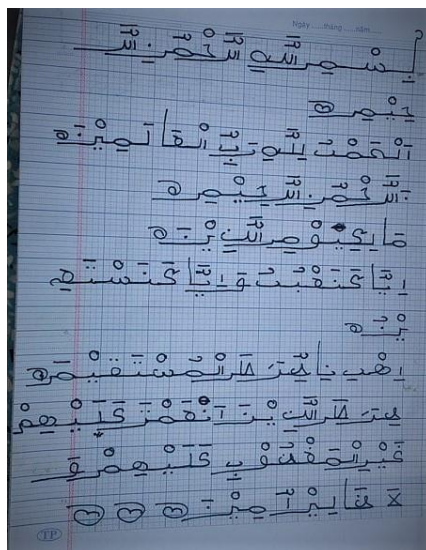 Ngày ..... tháng ..... năm .....
بِسْمِ اللهِ الرَّحْمٰنِ الرَّ
حِيْمِ
اَلْحَمْدُ لِلّٰهِ رَبِّ الْعَالَمِيْنَ
الرَّحْمٰنِ الرَّحِيْمِ
مَالِكِ يَوْمِ الدِّيْنِ
اِيَّاكَ نَعْبُدُ وَاِيَّاكَ نَسْتَعِ
يْنُ
اِهْدِنَا الصِّرَاطَ الْمُسْتَقِيْمَ
صِرَاطَ الَّذِيْنَ اَنْعَمْتَ عَلَيْهِمْ
غَيْرِ الْمَغْضُوْبِ عَلَيْهِمْ وَ
لَا الضَّالِّيْنَ اٰمِيْنَ
TP